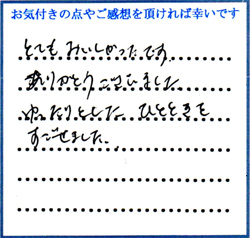 お気付きの点やご感想を頂ければ幸いです
とてもおいしかったです。
ありがとうございました
ゆったりとした ひとときを
すごせました。